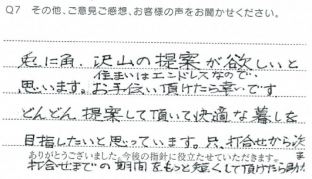 Q7 その他、ご意見ご感想、お客様の声をお聞かせください。
兎に角、沢山の提案が欲しいと
住まいはエンドレスなので…
思います。お手伝い頂けたら幸いです
どんどん提案して頂いて快適な暮しを
目指したいと思っています。只、打合せから次
ありがとうございました。今後の指針に役立たせていただきます。
打合せまでの期間をもっと短くして頂けたら助か